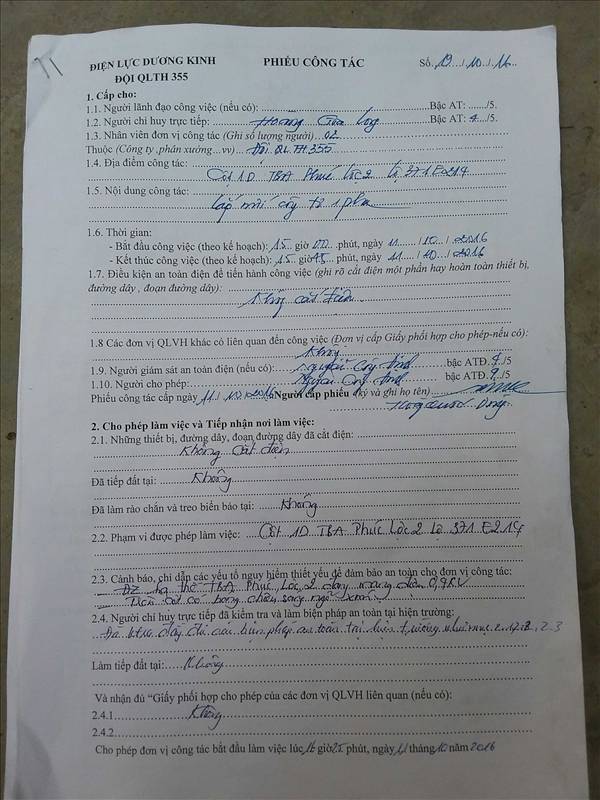 71
ĐIỆN LỰC DƯƠNG KINH PHIẾU CÔNG TÁC Số. 19.../10.../16...
ĐỘI QLTH 355
1. Cấp cho:
1.1. Người lãnh đạo công việc (nếu có): Bậc AT: ......./5.
1.2. Người chỉ huy trực tiếp: Hoàng Gia Long Bậc AT: 4./5.
1.3. Nhân viên đơn vị công tác (Ghi số lượng người)...02
Thuộc (Công ty ,phân xưởng...vv)... Đội QLTH 355
1.4. Địa điểm công tác: Cột 1D TBA Phúc Lộc 2 lộ 371 E2.14
1.5. Nội dung công tác:
Lắp mới công tơ 1 pha
1.6. Thời gian:
- Bắt đầu công việc (theo kế hoạch): 15 giờ 00 phút, ngày 11 / 10 / 2016
- Kết thúc công việc (theo kế hoạch): 15 giờ 45 phút, ngày 11 / 10 / 2016
1.7. Điều kiện an toàn điện để tiến hành công việc (ghi rõ cắt điện một phần hay hoàn toàn thiết bị,
đường dây , đoạn đường dây):
Không cắt điện
1.8 Các đơn vị QLVH khác có liên quan đến công việc (Đơn vị cấp Giấy phối hợp cho phép-nếu có):
Không
1.9. Người giám sát an toàn điện (nếu có): Nguyễn bậc ATĐ. /5
1.10. Người cho phép: Nguyễn bậc ATĐ. /5
Phiếu công tác cấp ngày 11/10/2016 Người cấp phiếu (ký và ghi họ tên)
2. Cho phép làm việc và Tiếp nhận nơi làm việc:
2.1. Những thiết bị, đường dây, đoạn đường dây đã cắt điện:
Không cắt điện
Đã tiếp đất tại: Không
Đã làm rào chắn và treo biển báo tại: Không
2.2. Phạm vi được phép làm việc: Cột 1D TBA Phúc Lộc 2 lộ 371 E2.14
2.3. Cảnh báo, chỉ dẫn các yếu tố nguy hiểm thiết yếu để đảm bảo an toàn cho đơn vị công tác:
ĐZ hạ thế TBA Phúc Lộc 2 đang mang điện
Trên cột có
2.4. Người chỉ huy trực tiếp đã kiểm tra và làm biện pháp an toàn tại hiện trường:
Đã đầy đủ các biện pháp an toàn tại hiện trường như mục 2.1, 2.2, 2.3
Làm tiếp đất tại: Không
Và nhận đủ “Giấy phối hợp cho phép của các đơn vị QLVH liên quan (nếu có):
2.4.1 Không
2.4.2
Cho phép đơn vị công tác bắt đầu làm việc lúc giờ phút, ngày 11 tháng 10 năm 2016